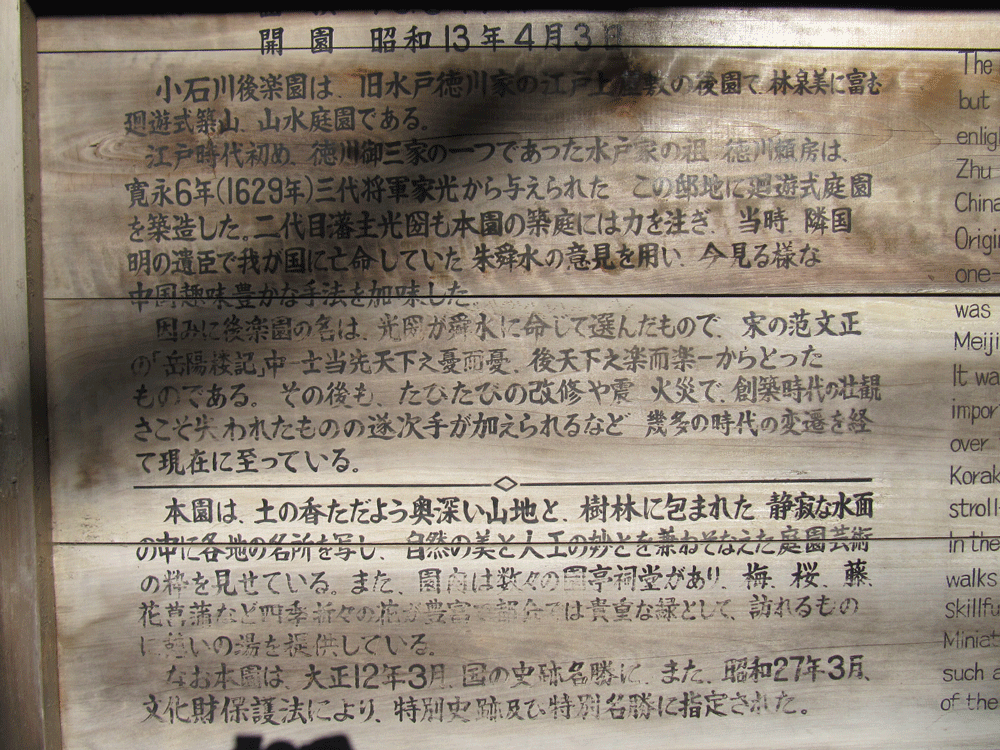 開園 昭和13年4月3日
小石川後楽園は、旧水戸徳川家の江戸上屋敷の後園で、林泉美に富む
廻遊式築山、山水庭園である。
江戸時代初め、徳川御三家の一つであった水戸家の祖 徳川頼房は、
寛永6年(1629年)三代将軍家光から与えられた この邸地に廻遊式庭園
を築造した。二代目藩主光圀も本園の築庭には力を注ぎ、当時、隣国
明の遺臣で我が国に亡命していた 朱舜水の意見を用い、今見る様な
中国趣味豊かな手法を加味した。
因みに後楽園の名は、光圀が舜水に命じて選んだもので、宋の范文正
の「岳陽楼記」中―士当先天下之憂而憂、後天下之楽而楽―からとった
ものである。その後も、たびたびの改修や震 火災で、創築時代の壮観
さこそ失われたものの逐次手が加えられるなど 幾多の時代の変遷を経
て現在に至っている。
本園は、土の香ただよう奥深い山地と、樹林に包まれた 静寂な水面
の中に各地の名所を写し、自然の美と人工の妙とを兼ねそなえた庭園芸術
の粋を見せている。また、園内は数々の園亭祠堂があり、梅、桜、藤、
花菖蒲など四季折々の花が豊富で都会では貴重な緑として、訪れるもの
に憩いの場を提供している。
なお本園は、大正12年3月、国の史跡名勝に、また、昭和27年3月、
文化財保護法により、特別史跡及び特別名勝に指定された。
The
but
enlig
Zhu
China
Origin
one-
was
Meiji
It wa
impor
over
Korak
stroll-
In the
walks
skillfu
Miniat
such a
of the